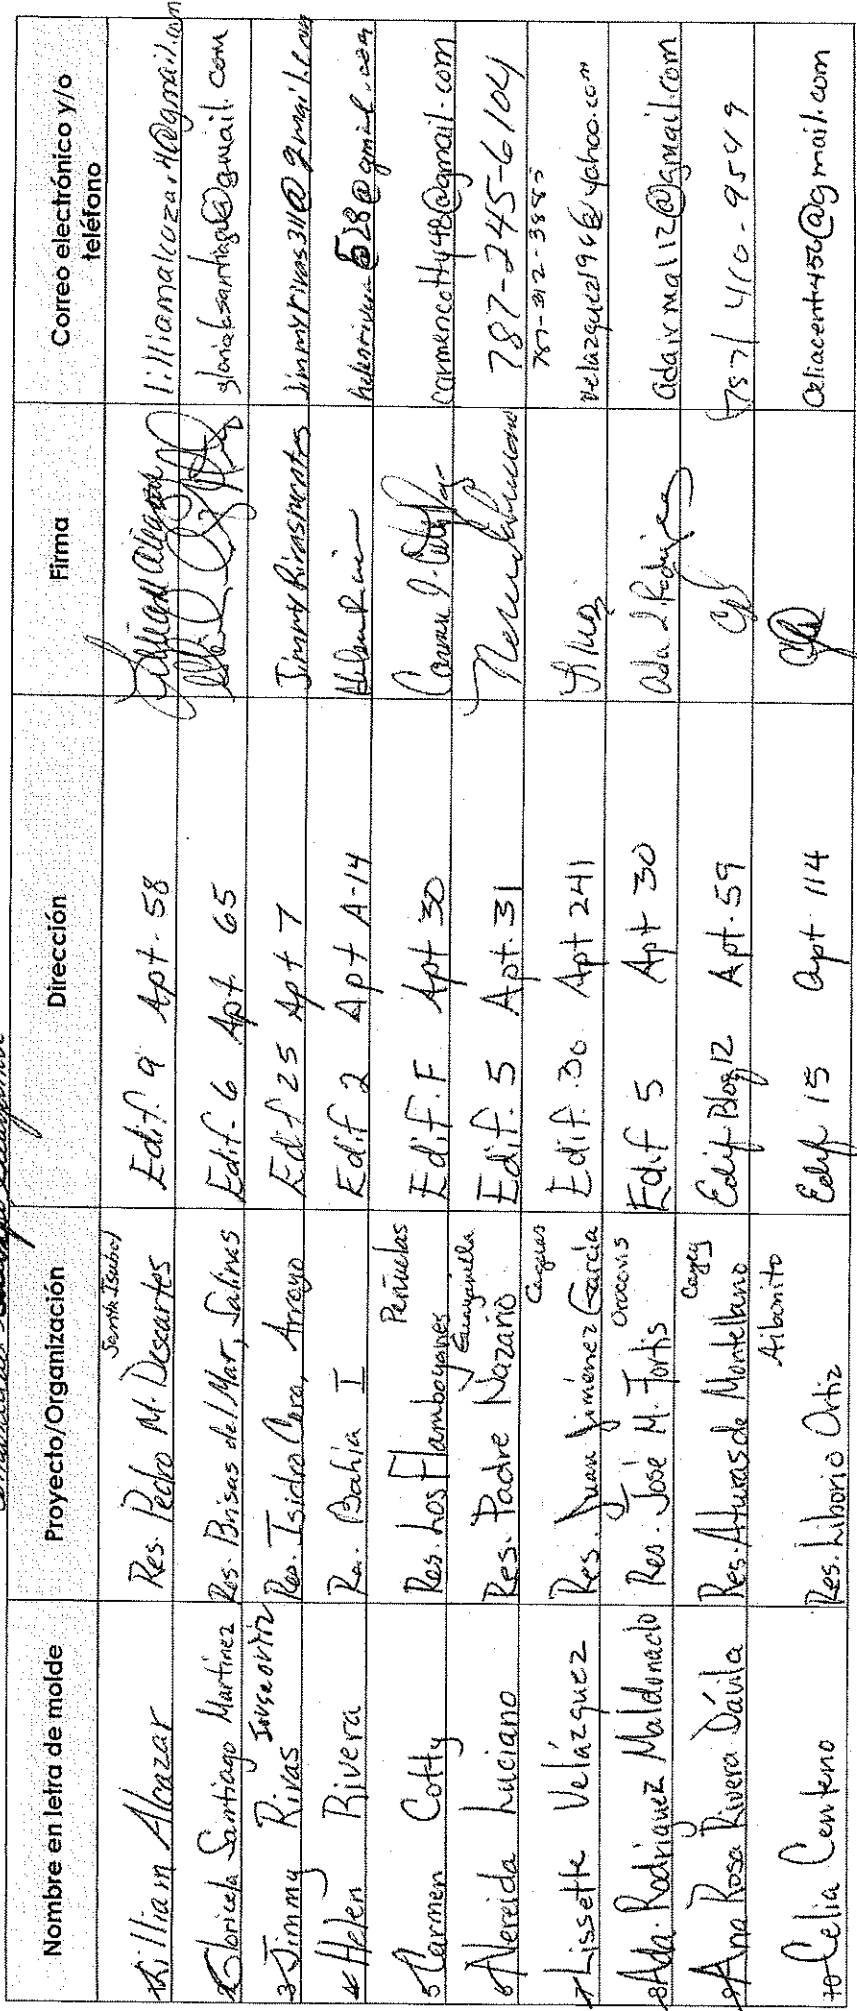 Nombre en letra de molde Proyecto/Organización Dirección Firma Correo electrónico y/o teléfono
1 Lilliam Alcazar Res. Pedro M. Descartes Santa Isabel Edif. 9 Apt. 58
2 Gloricela Santiago Martinez Res. Brisas del Mar, Salinas Edif. 6 Apt. 65
3 Jimmy Rivas Res. Isidro Cora, Arroyo Edif 25 Apt 7 Jimmy Rivas jimmyrivas311@gmail.com
4 Helen Rivera Res. Bahía I Edif 2 Apt A-14 Helen Rivera
5 Carmen Cotty Res. Los Flamboyanes Peñuelas Edif. F Apt 30 Carmen I. Cotty carmencotty48@gmail.com
6 Nereida Luciano Res. Padre Nazario Guayanilla Edif. 5 Apt. 31 Nereida Luciano 787-245-6104
7 Lissette Velázquez Res. Juan Jiménez García Caguas Edif. 30 Apt 241 787-312-3885
velazquez196@yahoo.com
8 Ada. Rodriguez Maldonado Res. José M. Tortis Orocovis Edif 5 Apt 30 Ada I. Rodriguez adairmal12@gmail.com
9 Ana Rosa Rivera Dávila Res. Alturas de Montellano Cayey Edif Bloq 12 Apt. 59 787/410-9549
10 Celia Centeno Res. Liborio Ortiz Aibonito Edif 15 Apt 114 celiacent456@gmail.com